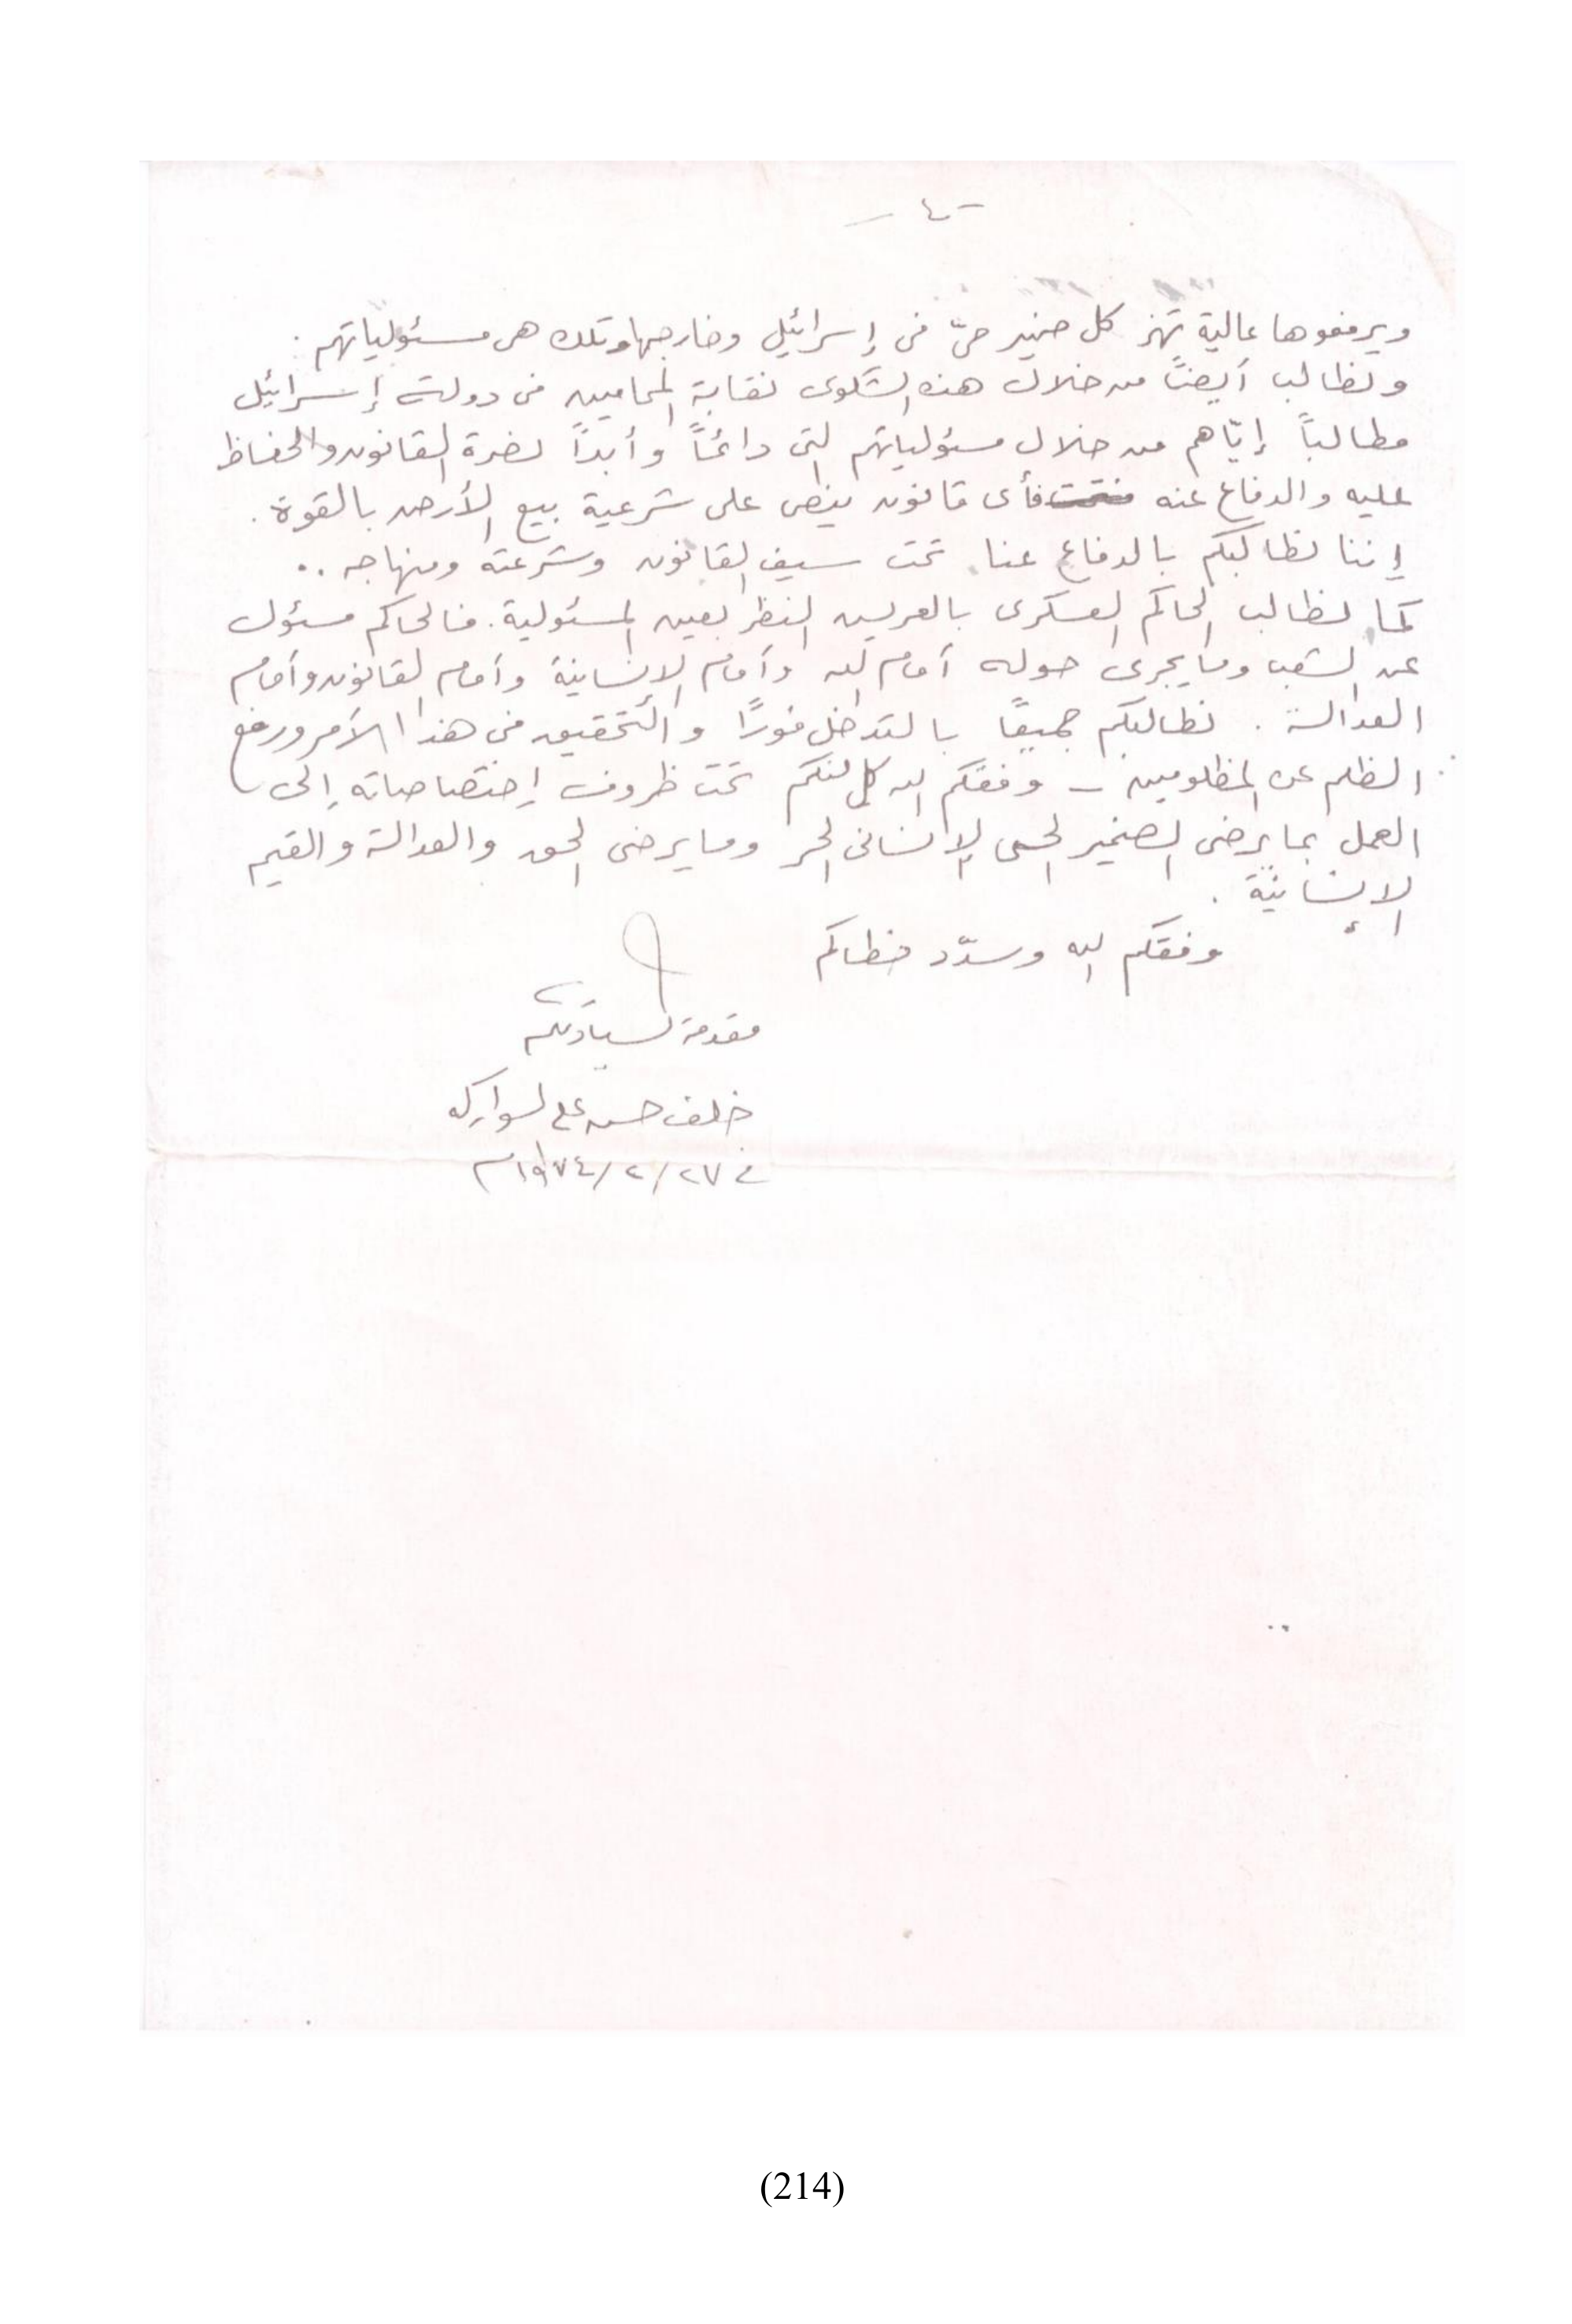 - ٤ -
ويرفعوها عالية تهز كل ضمير حىّ فى إسرائيل وخارجها وتلك هى مسئولياتهم .
ونطالب أيضاً من خلال هذه الشكوى نقابة المحاميين فى دولة إسرائيل
مطالباً إيّاهم من خلال مسئولياتهم التى دائماً وأبداً نصرة القانون والحفاظ
عليه والدفاع عنه فأى قانون ينص على شرعية بيع الأرض بالقوة .
إننا نطالبكم بالدفاع عنا تحت سيف القانون وشرعته ومنهاجه ..
كما نطالب الحاكم العسكرى بالعريش النظر بعين المسئولية . فالحاكم مسئول
عن الشعب وما يجرى حوله أمام الله وأمام الإنسانية وأمام القانون وأمام
العدالة . نطالبكم جميعًا بالتدخل فورًا والتحقيق فى هذا الأمر ورفع
الظلم عن المظلومين - وفقكم الله كل منكم تحت ظروف إختصاصاته إلى
العمل بما يرضى الضمير الحى الإنسانى الحر وما يرضى الحق والعدالة والقيم
الإنسانيّة .
وفقكم الله وسدّد خطاكم
مقدمة لسيادتكم
خلف حسن على السواركه
فى ٢٧/٢/١٩٧٤م
(214)